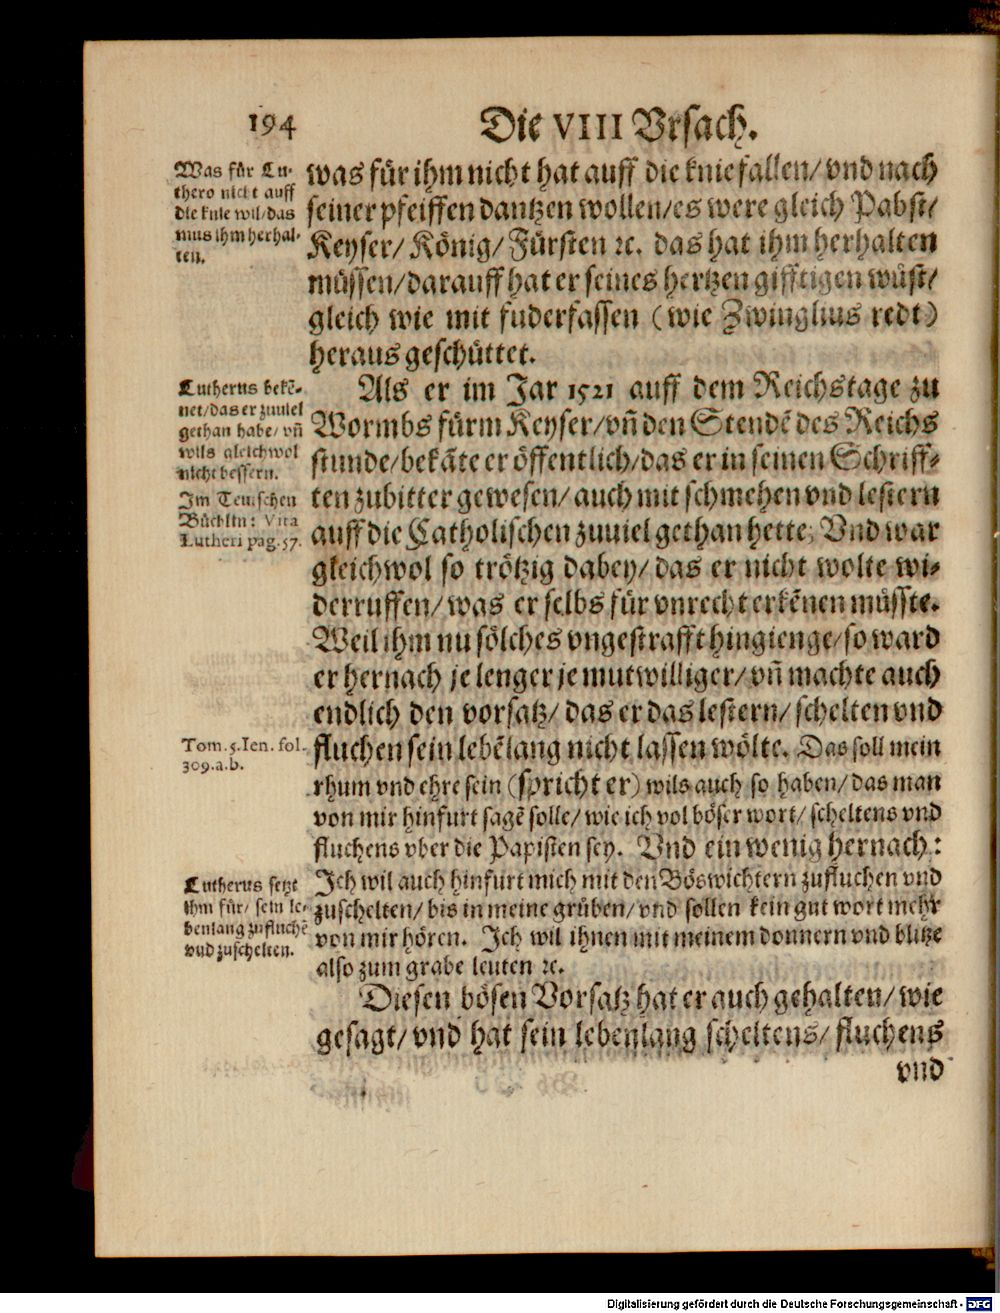 194
Die VIII Vrsach.
Was für Lu-
thero nicht auff
die knie wil/das
mus ihm herhal-
ten.
was für ihm nicht hat auff die knie fallen/ vnd nach
seiner pfeiffen dantzen wollen/es were gleich Pabst/
Keyser/ König/ Fürsten ꝛc. das hat ihm herhalten
müssen/darauff hat er seines hertzen gifftigen wüst/
gleich wie mit fuderfassen (wie Zwinglius redt)
heraus geschüttet.
Lutherus bekẽ-
net/das er zuuiel
gethan habe/ vñ
wils gleichwol
nicht bessern.
Im Teutschen
Büchlin: Vita
Lutheri pag. 57.
Als er im Jar 1521 auff dem Reichstage zu
Wormbs fürm Keyser/vñ den Stendẽ des Reichs
stunde/bekãte er öffentlich/das er in seinen Schriff-
ten zubitter gewesen/ auch mit schmehen vnd lestern
auff die Catholischen zuuiel gethan hette; Vnd war
gleichwol so trötzig dabey/ das er nicht wolte wi-
derruffen/was er selbs für vnrecht erkẽnen müsste.
Weil ihm nu sölches vngestrafft hingienge/so ward
er hernach je lenger je mutwilliger/ vñ machte auch
endlich den vorsatz/ das er das lestern/ schelten vnd
Tom. 5. Ien. fol.
309. a. b.
fluchen sein lebẽlang nicht lassen wölte. Das soll mein
rhum vnd ehre sein (spricht er) wils auch so haben/das man
von mir hinfurt sagẽ solle/ wie ich vol böser wort/ scheltens vnd
fluchens vber die Papisten sey. Vnd ein wenig hernach:
Lutherus setzt
ihm für/ sein le-
benlang zufluchẽ
vnd zuschelten.
Ich wil auch hinfurt mich mit den Böswichtern zufluchen vnd
zuschelten/ bis in meine grüben/ vnd sollen kein gut wort mehr
von mir hören. Ich wil ihnen mit meinem donnern vnd blitze
also zum grabe leuten ꝛc.
Diesen bösen Vorsatz hat er auch gehalten/ wie
gesagt/ vnd hat sein lebenlang scheltens/ fluchens
vnd
Digitalisierung gefördert durch die Deutsche Forschungsgemeinschaft - DFG